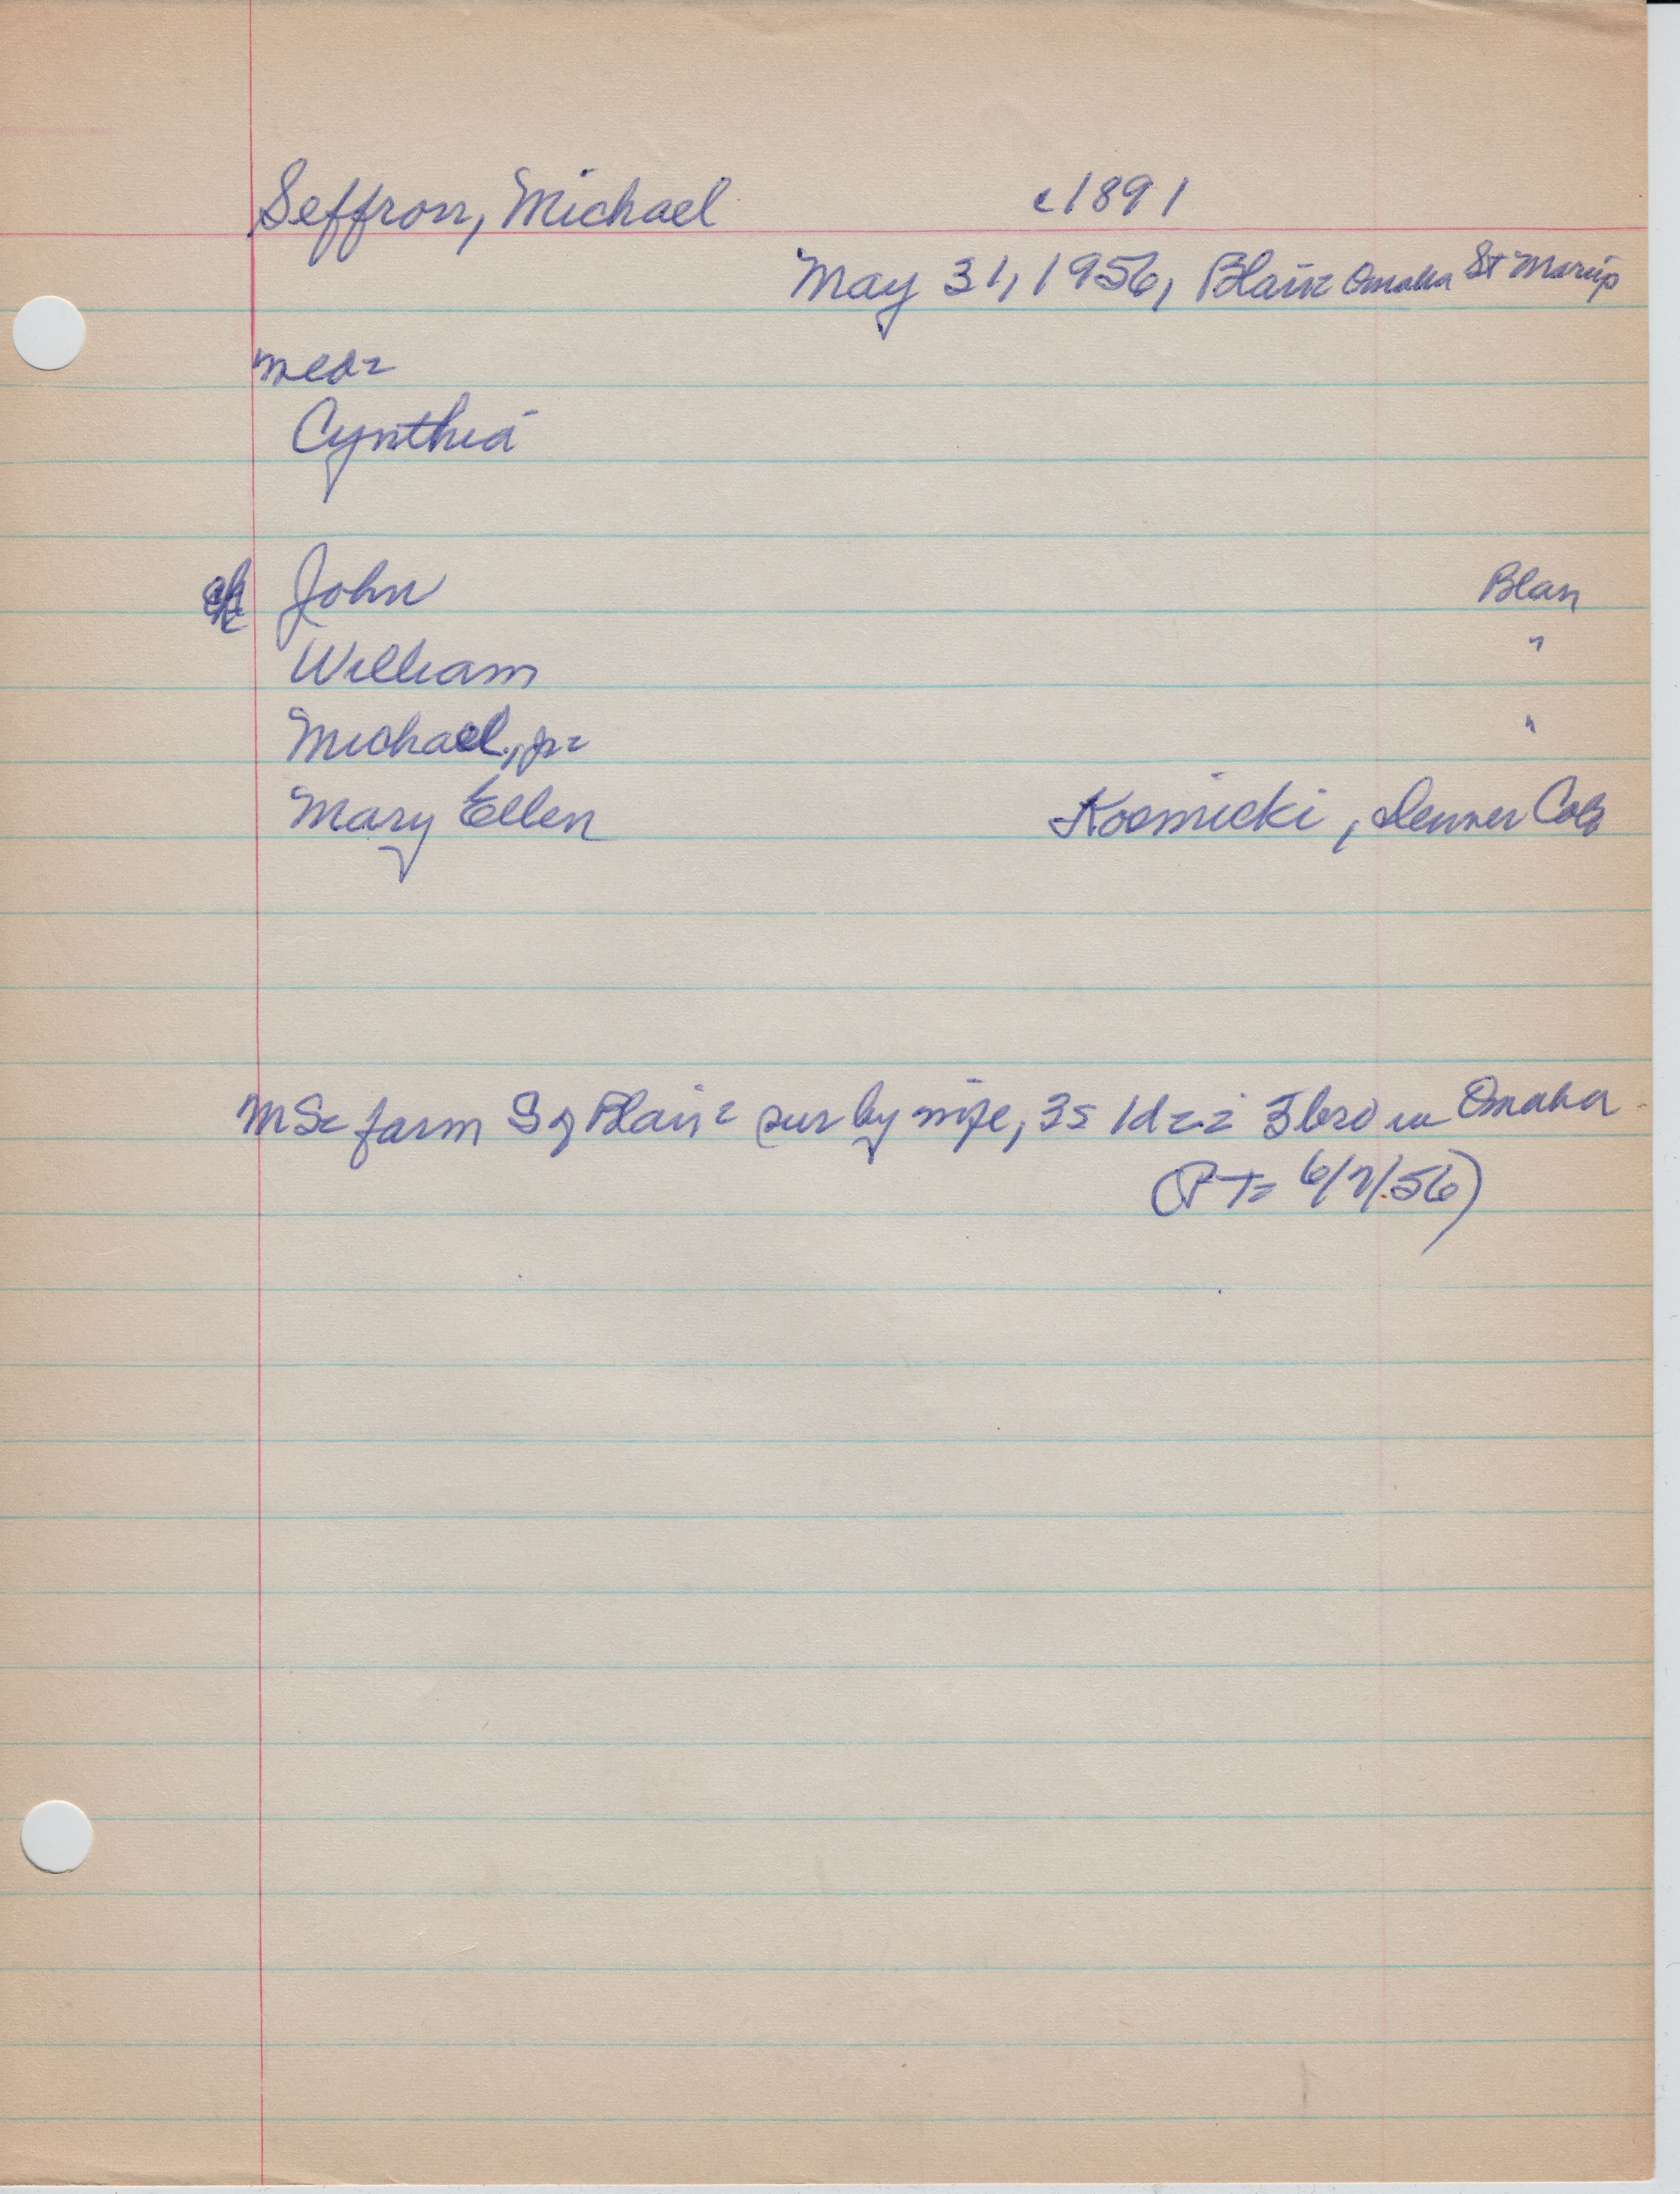 Seffron, Michael c1891
May 31, 1956, Blair Omaha St Marys
Cynthia
ch John Blair
William "
Michael, jr "
Mary Ellen Kosmicki, Denver Colo
farm S of Blair sur by wife, 3s 1d 3 bro in Omaha
(PT 6/7/56)